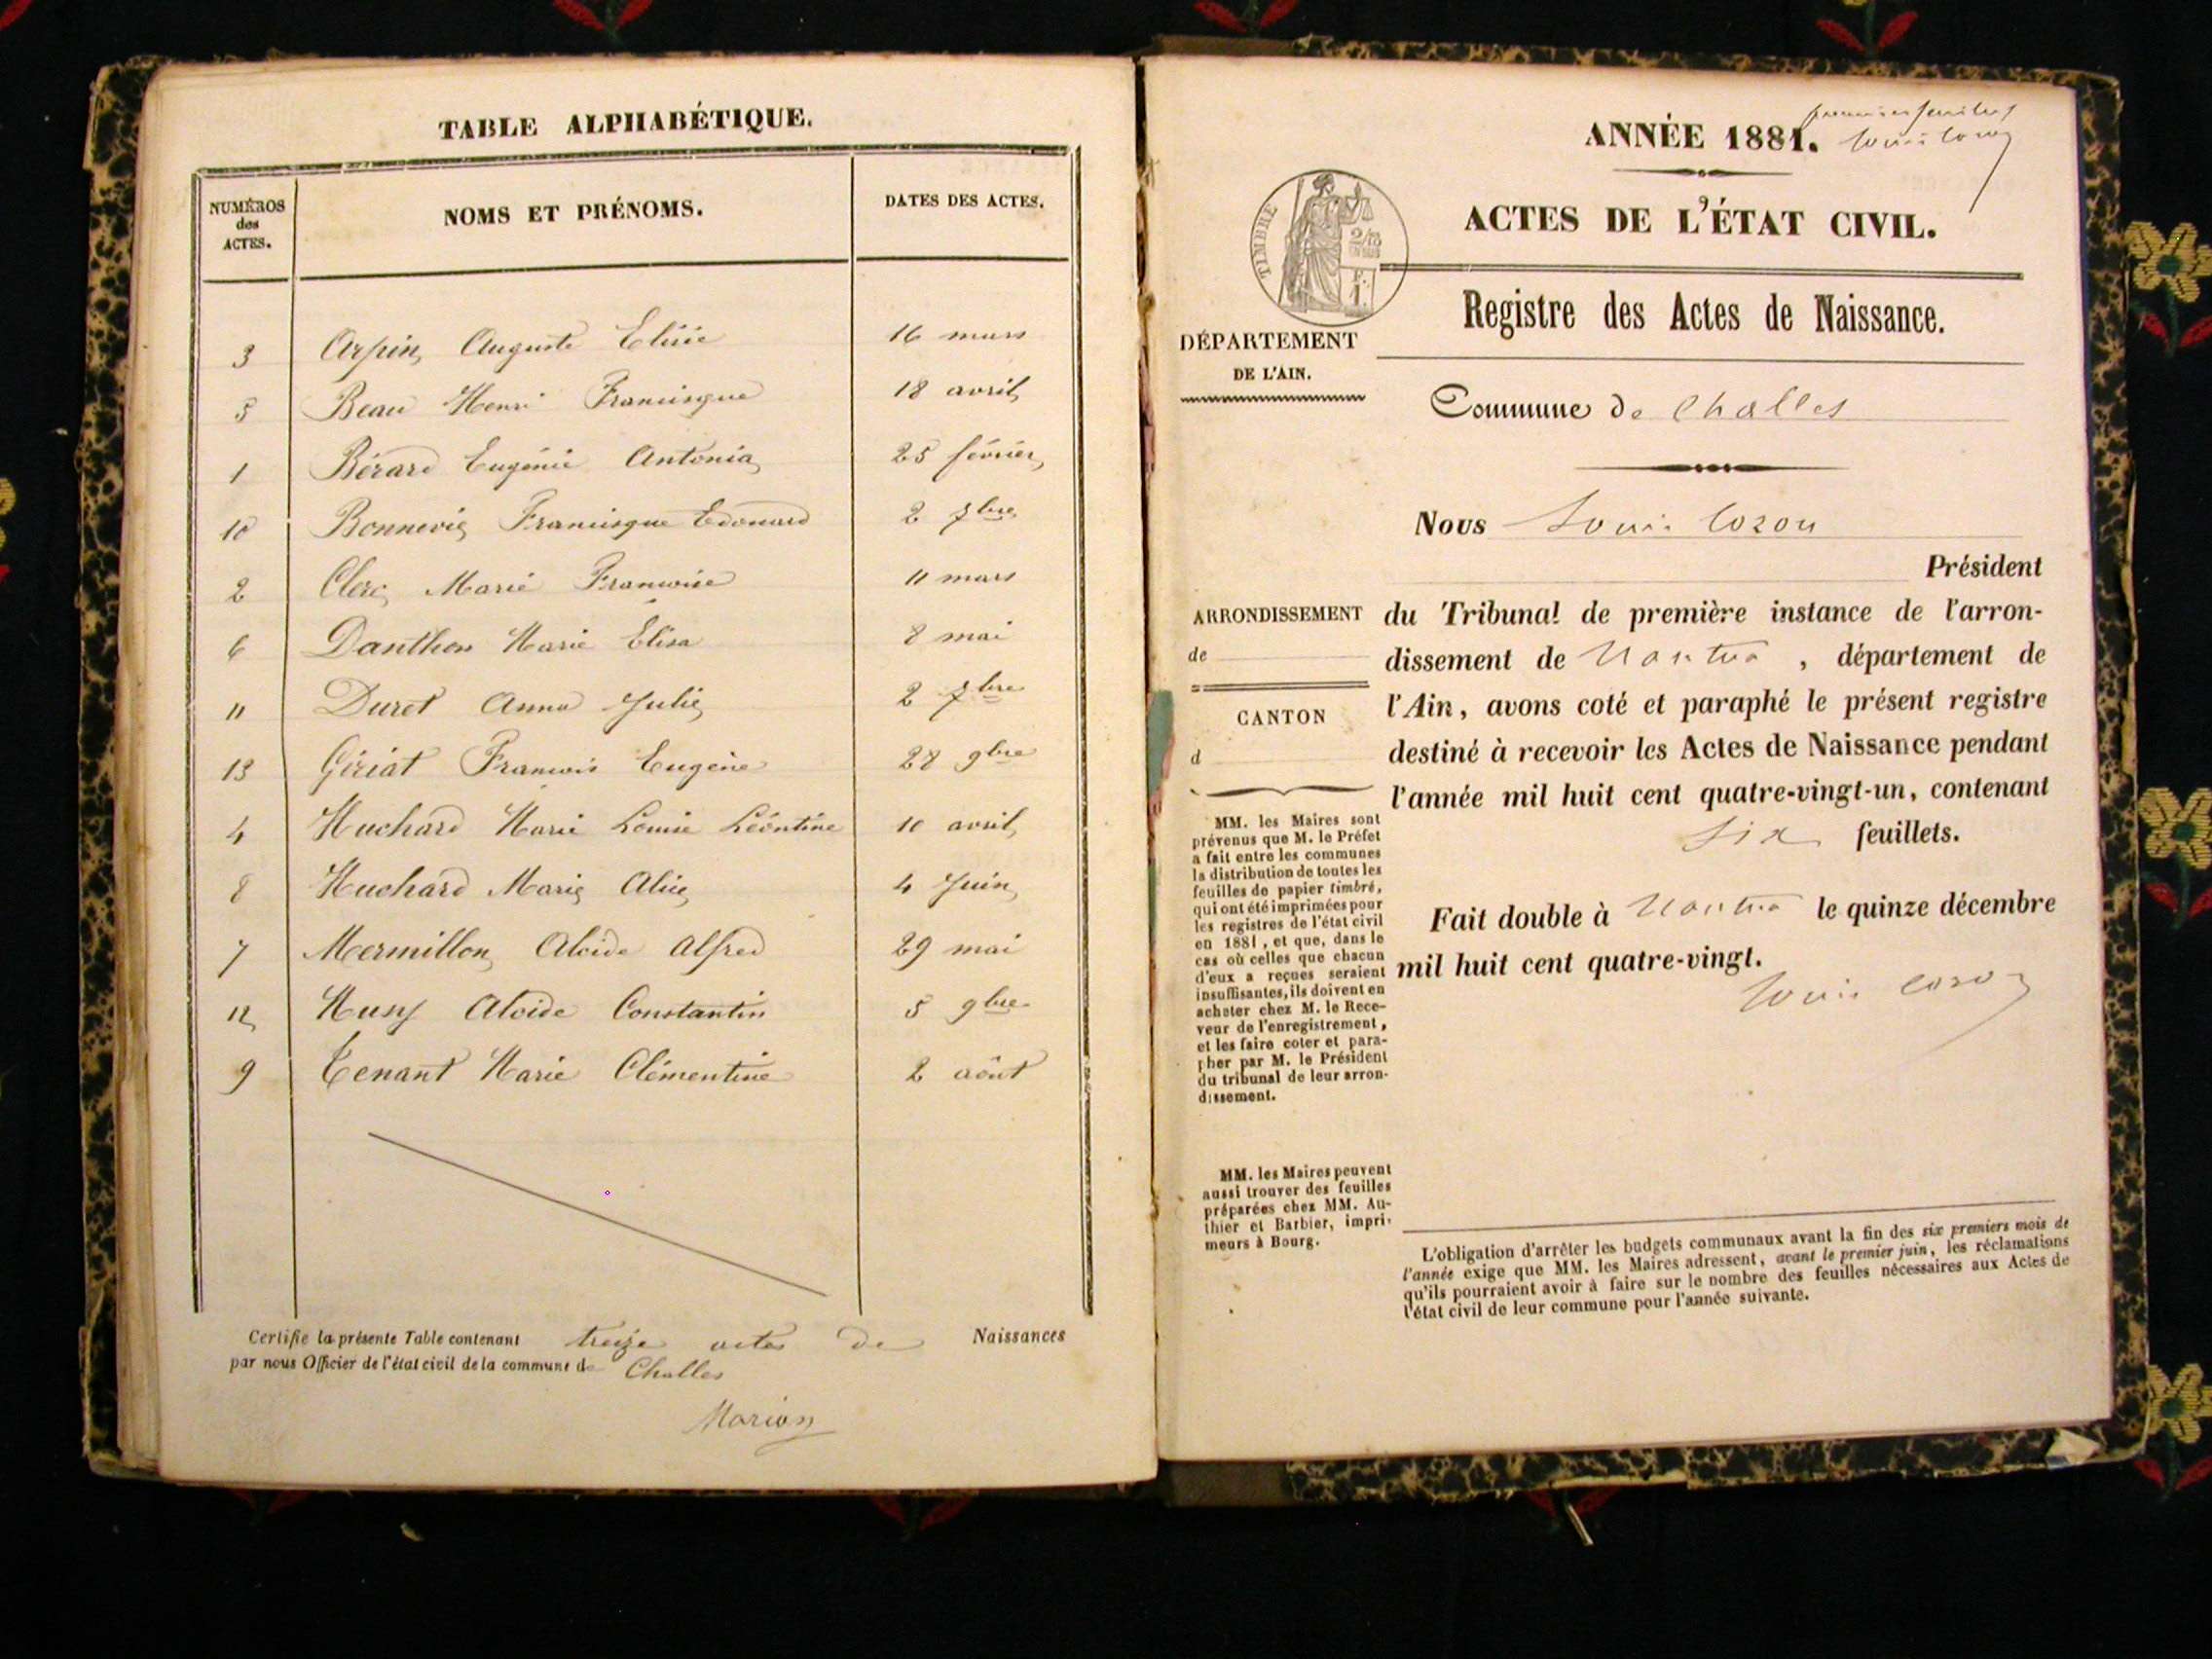 TABLE ALPHABÉTIQUE.
NUMÉROS
des
ACTES.
NOMS ET PRÉNOMS.
DATES DES ACTES.
3 Arpin, Auguste Elisée 16 mars
5 Beau Henri Francisque 18 avril
1 Bérard Eugénie Antonia 25 février
10 Bonnevie Francisque Edouard 2 7bre
2 Clerc Marie Francoise 11 mars
6 Danthon Marie Elisa 8 mai
11 Duret Anna Julie 2 7bre
13 Giriat Francois Eugène 28 9bre
4 Huchard Marie Louise Léontine 10 avril
8 Huchard Marie Alice 4 Juin
7 Mermillon Alcide Alfred 29 mai
12 Alcide Constantin 5 9bre
9 Tenant Marie Clémentine 2 août
Certifie la présente Table contenant treize actes de Naissances
par nous Officier de l'état civil de la commune de Challes
Marion
premier feuillet
ANNÉE 1881.
Louis Cozon
ACTES DE L'ÉTAT CIVIL.
TIMBRE
Registre des Actes de Naissance.
DÉPARTEMENT
DE L'AIN.
Commune de Challes
Nous Louis Cozon
Président
ARRONDISSEMENT
de
CANTON
d
du Tribunal de première instance de l'arron-
dissement de Nantua, département de
l'Ain, avons coté et paraphé le présent registre
destiné à recevoir les Actes de Naissance pendant
l'année mil huit cent quatre-vingt-un, contenant
six feuillets.
Fait double à Nantua le quinze décembre
mil huit cent quatre-vingt.
Louis Cozon
MM. les Maires sont
prévenus que M. le Préfet
a fait entre les communes
la distribution de toutes les
feuilles de papier timbré,
qui ont été imprimées pour
les registres de l'état civil
en 1881, et que, dans le
cas où celles que chacun
d'eux a reçues seraient
insuffisantes, ils doivent en
acheter chez M. le Rece-
veur de l'enregistrement,
et les faire coter et para-
pher par M. le Président
du tribunal de leur arron-
dissement.
MM. les Maires peuvent
aussi trouver des feuilles
préparées chez MM. Au-
thier et Barbier, impri-
meurs à Bourg.
L'obligation d'arrêter les budgets communaux avant la fin des six premiers mois de
l'année exige que MM. les Maires adressent, avant le premier juin, les réclamations
qu'ils pourraient avoir à faire sur le nombre des feuilles nécessaires aux Actes de
l'état civil de leur commune pour l'année suivante.